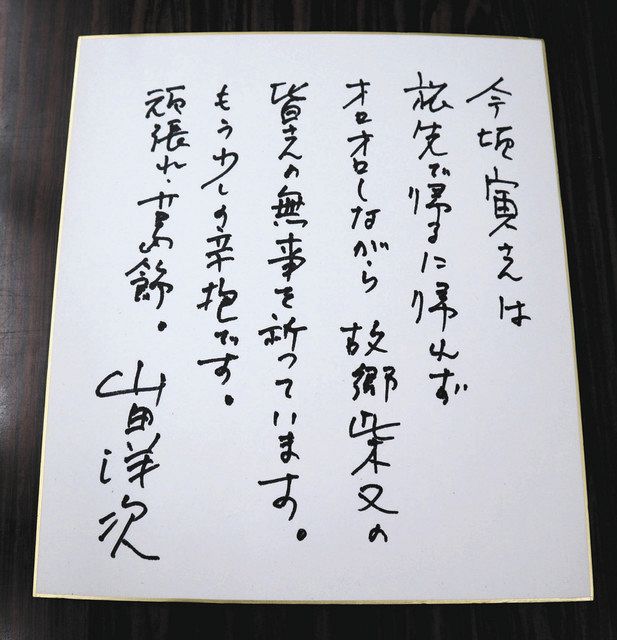 今頃寅さんは
旅先で帰るに帰れず
オロオロしながら 故郷柴又の
皆さんの無事を祈っています。
もう少しの辛抱です。
頑張れ、葛飾。
山田洋次